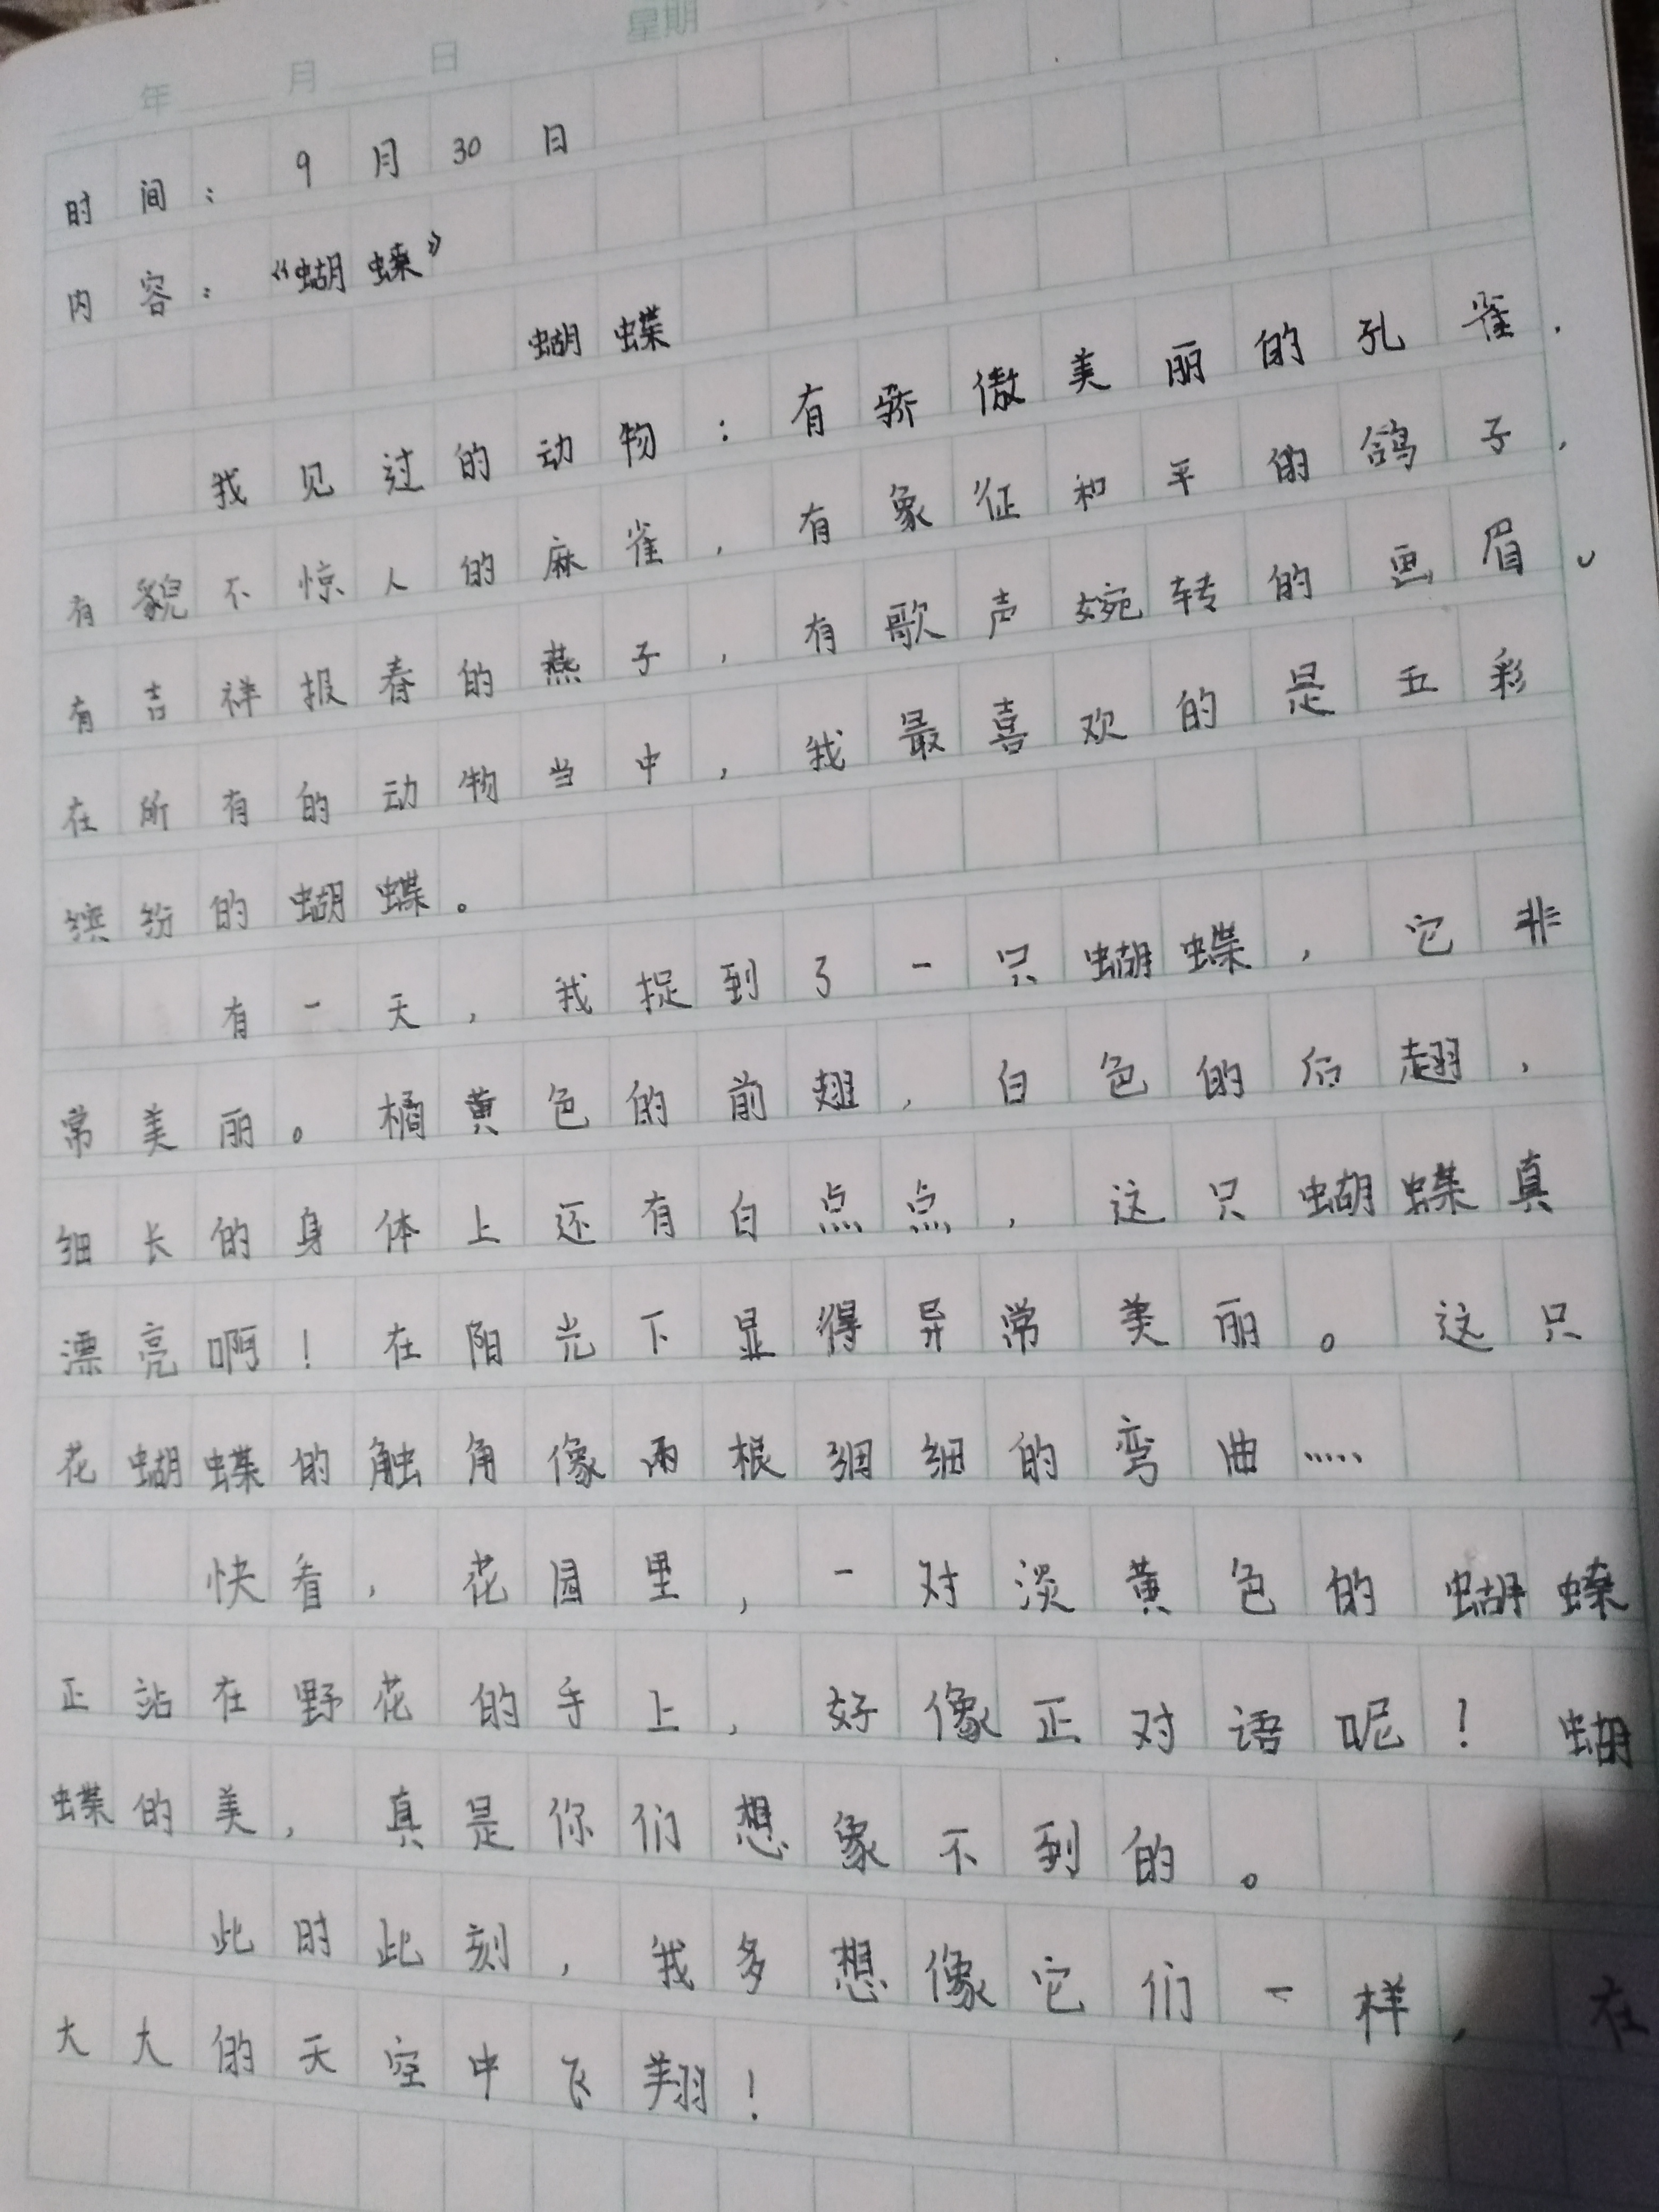 年 月 日 星期
时间：9月30日
内容：《蝴蝶》
蝴蝶
我见过的动物：有骄傲美丽的孔雀，
有貌不惊人的麻雀，有象征和平的鸽子，
有吉祥报春的燕子，有歌声婉转的画眉。
在所有的动物当中，我最喜欢的是五彩
缤纷的蝴蝶。
有一天，我捉到了一只蝴蝶，它非
常美丽。橘黄色的前翅，白色的后翅，
细长的身体上还有白点点，这只蝴蝶真
漂亮啊！在阳光下显得异常美丽。这只
花蝴蝶的触角像两根细细的弯曲……
快看，花园里，一对淡黄色的蝴蝶
正站在野花的手上，好像正对语呢！蝴
蝶的美，真是你们想象不到的。
此时此刻，我多想像它们一样，在
大大的天空中飞翔！